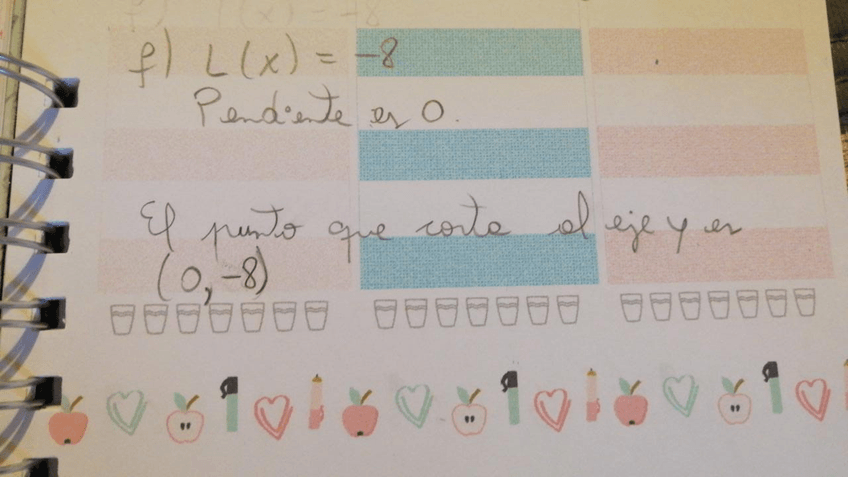 f) L(x) = -8
Pendiente es 0.
El punto que corta al eje y es
(0, -8)